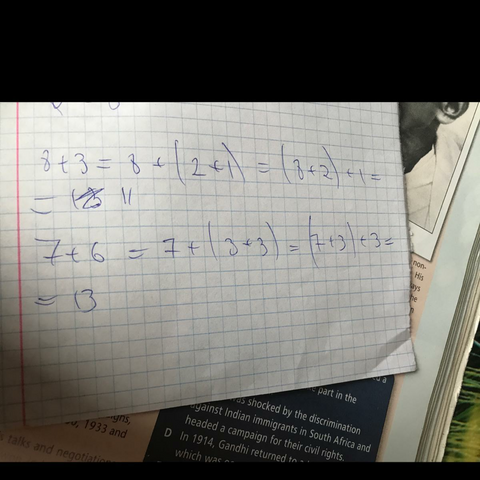 8+3 = 8 + (2+1) = (8+2)+1 =
= 11
7+6 = 7+(3+3) = (7+3)+3 =
= 13
non-
His
ays
he
part in the
as shocked by the discrimination
against Indian immigrants in South Africa and
headed a campaign for their civil rights.
D In 1914, Gandhi returned to
which was
igns,
1933 and
s talks and negotiation